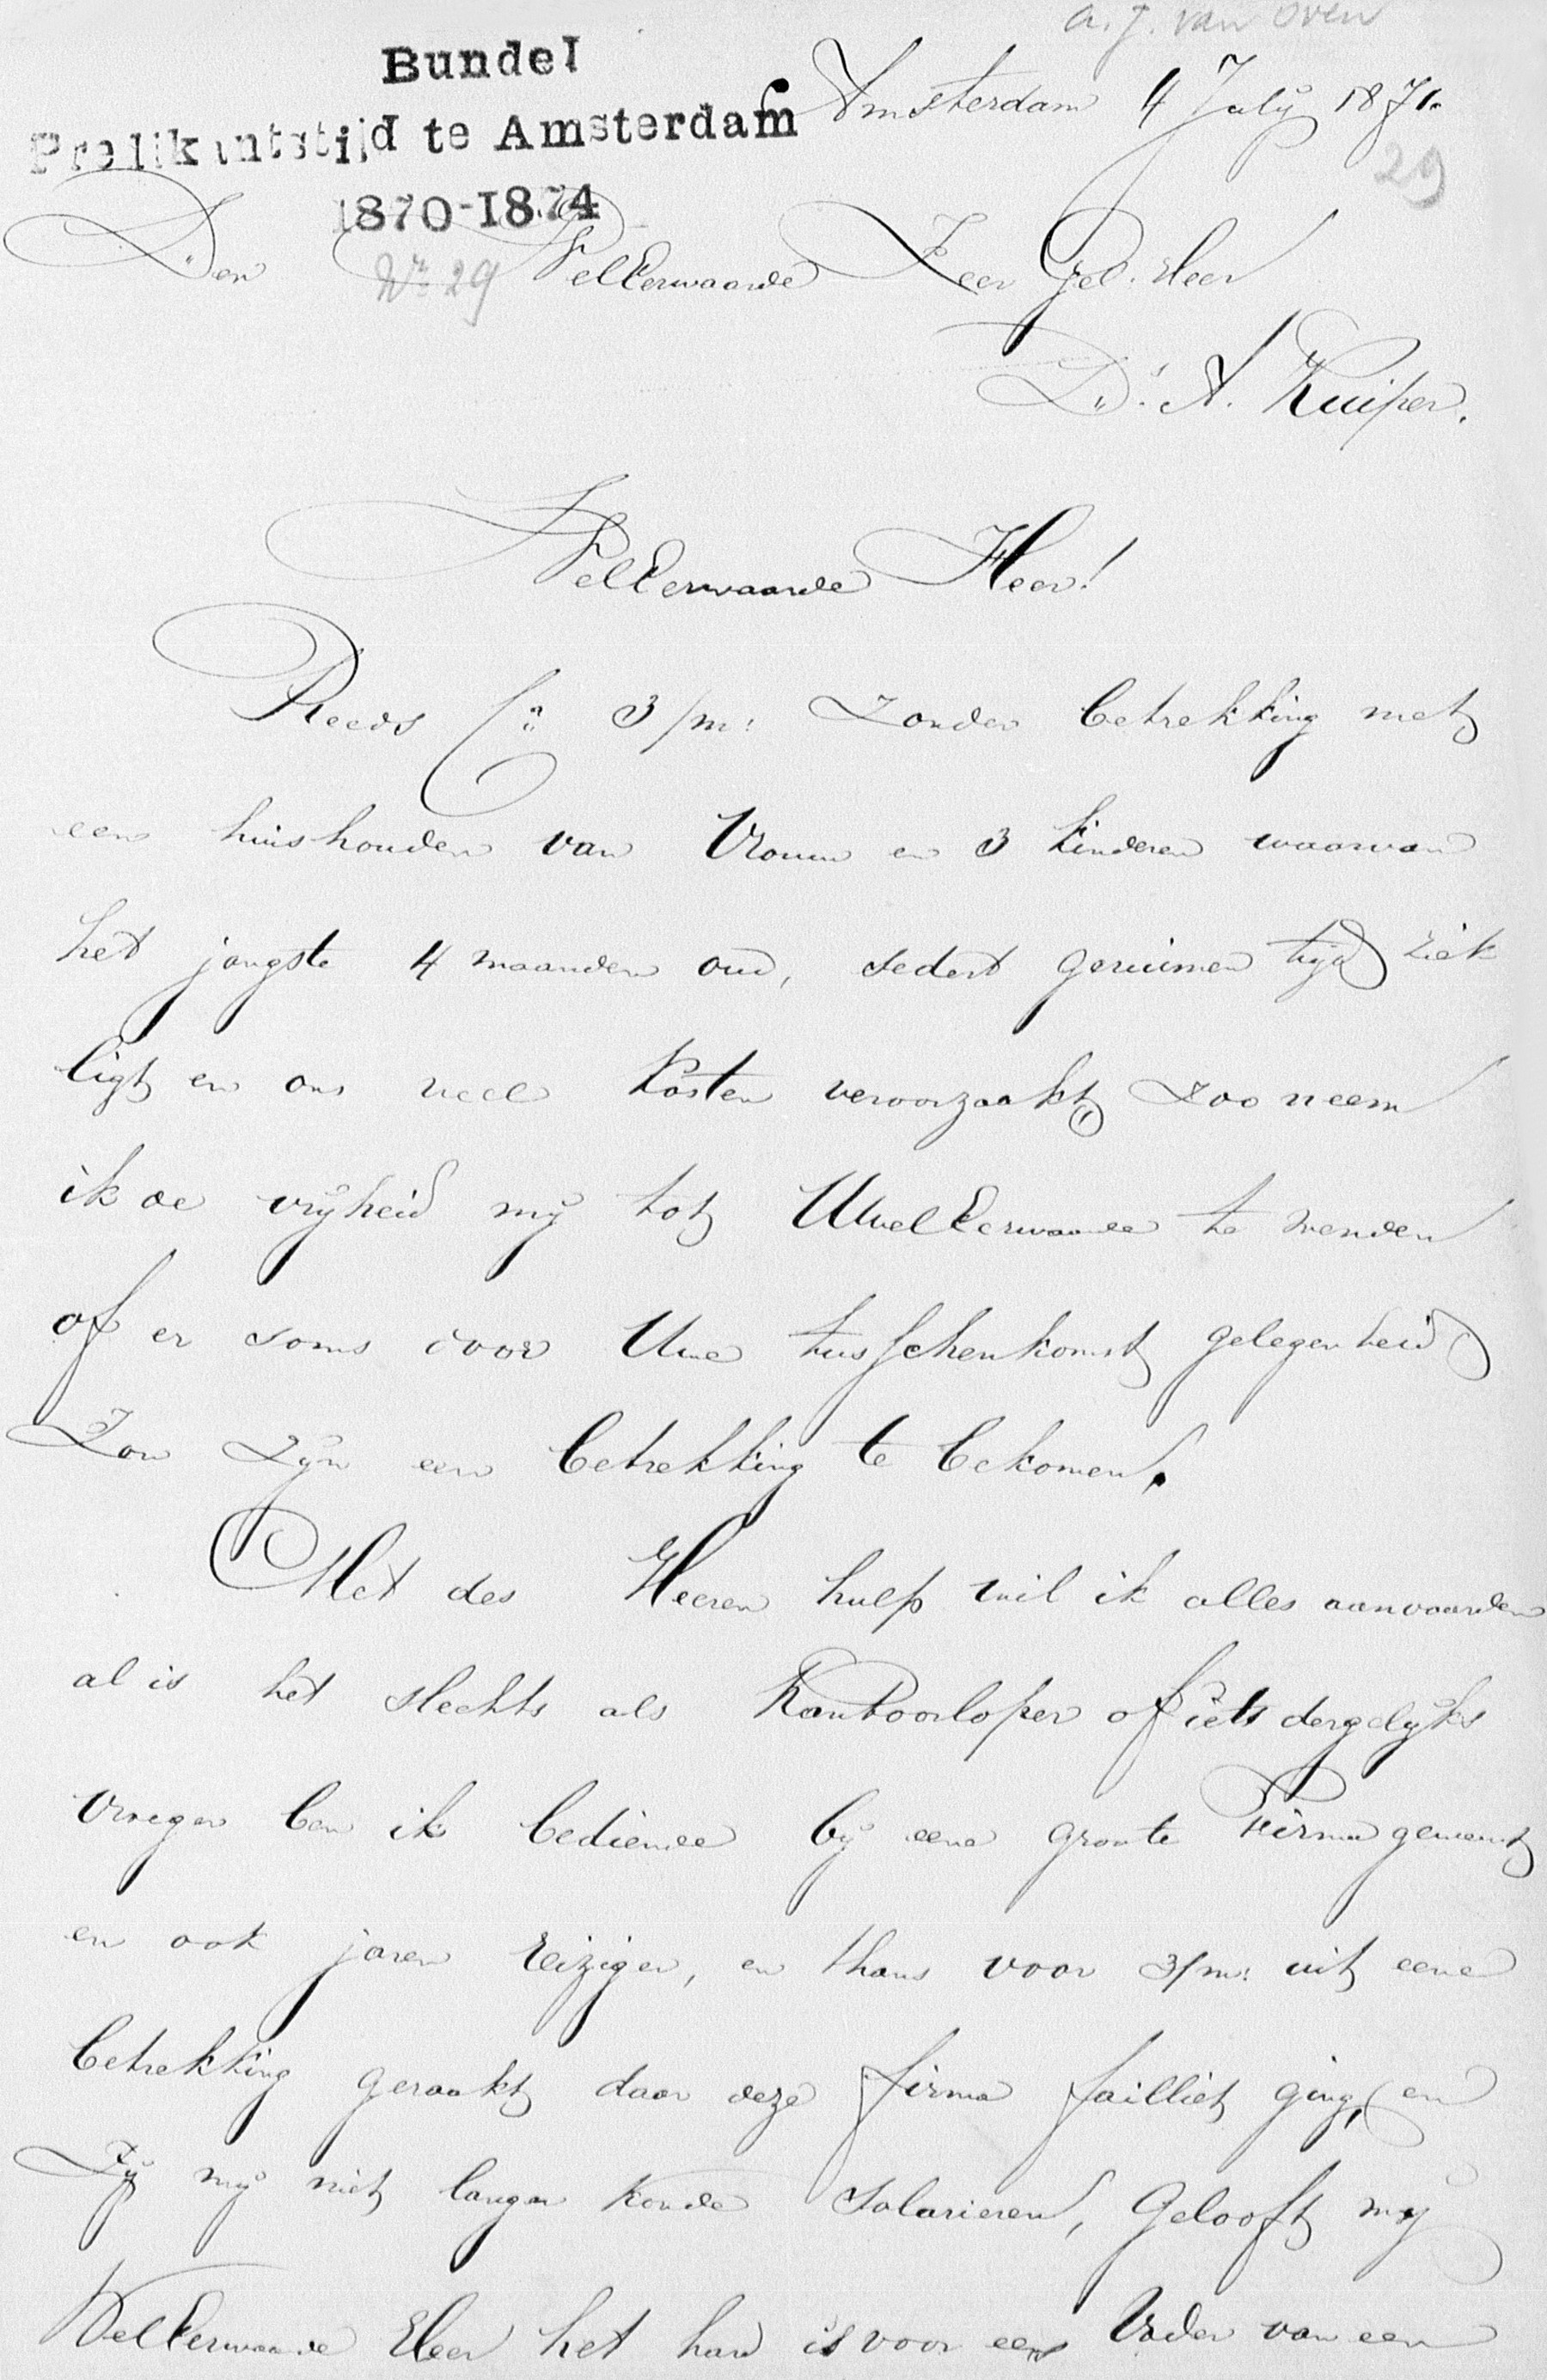 a. J. van Oven
Bundel
Predikantstijd te Amsterdam
1870-1874
Amsterdam 4 July 1871.
29
Den WelEerwaarde Zeer Gel. Heer
No 29
Dr. A. Kuiper.
WelEerwaarde Heer!
Reeds Ca 3/m: zonder betrekking met
een huishouden van Vrouw en 3 kinderen waarvan
het jongste 4 maanden oud, sedert geruimen tijd ziek
ligt en ons veel kosten veroorzaakt, zoo neem
ik de vrijheid mij tot UwelEerwaarde te wenden
of er soms door Uwe tusschenkomst gelegenheid
Zou zijn een betrekking te bekomen.
Met des Heeren hulp wil ik alles aanvaarden
al is het slechts als Kantoorloper of iets dergelijks
vroeger ben ik bediende bij eene groote Firma geweest
en ook jaren reiziger, en thans voor 3/m: uit eene
betrekking geraakt daar deze firma failliet ging, en
Zij mij niet langer konde salarieren, Gelooft mij
WelEerwaarde Heer het hard is voor een Vader van een